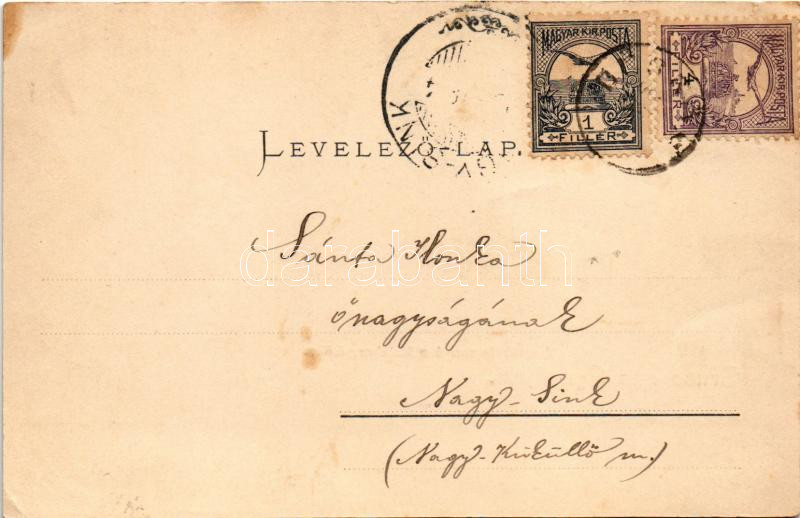 MAGYAR KIR. POSTA
1
FILLÉR
MAGYAR KIR. POSTA
FILLÉR
LEVELEZŐ-LAP.
Sánta Ilonka
őnagyságának
Nagy-Sink
(Nagy-Küküllő m.)
darabanth